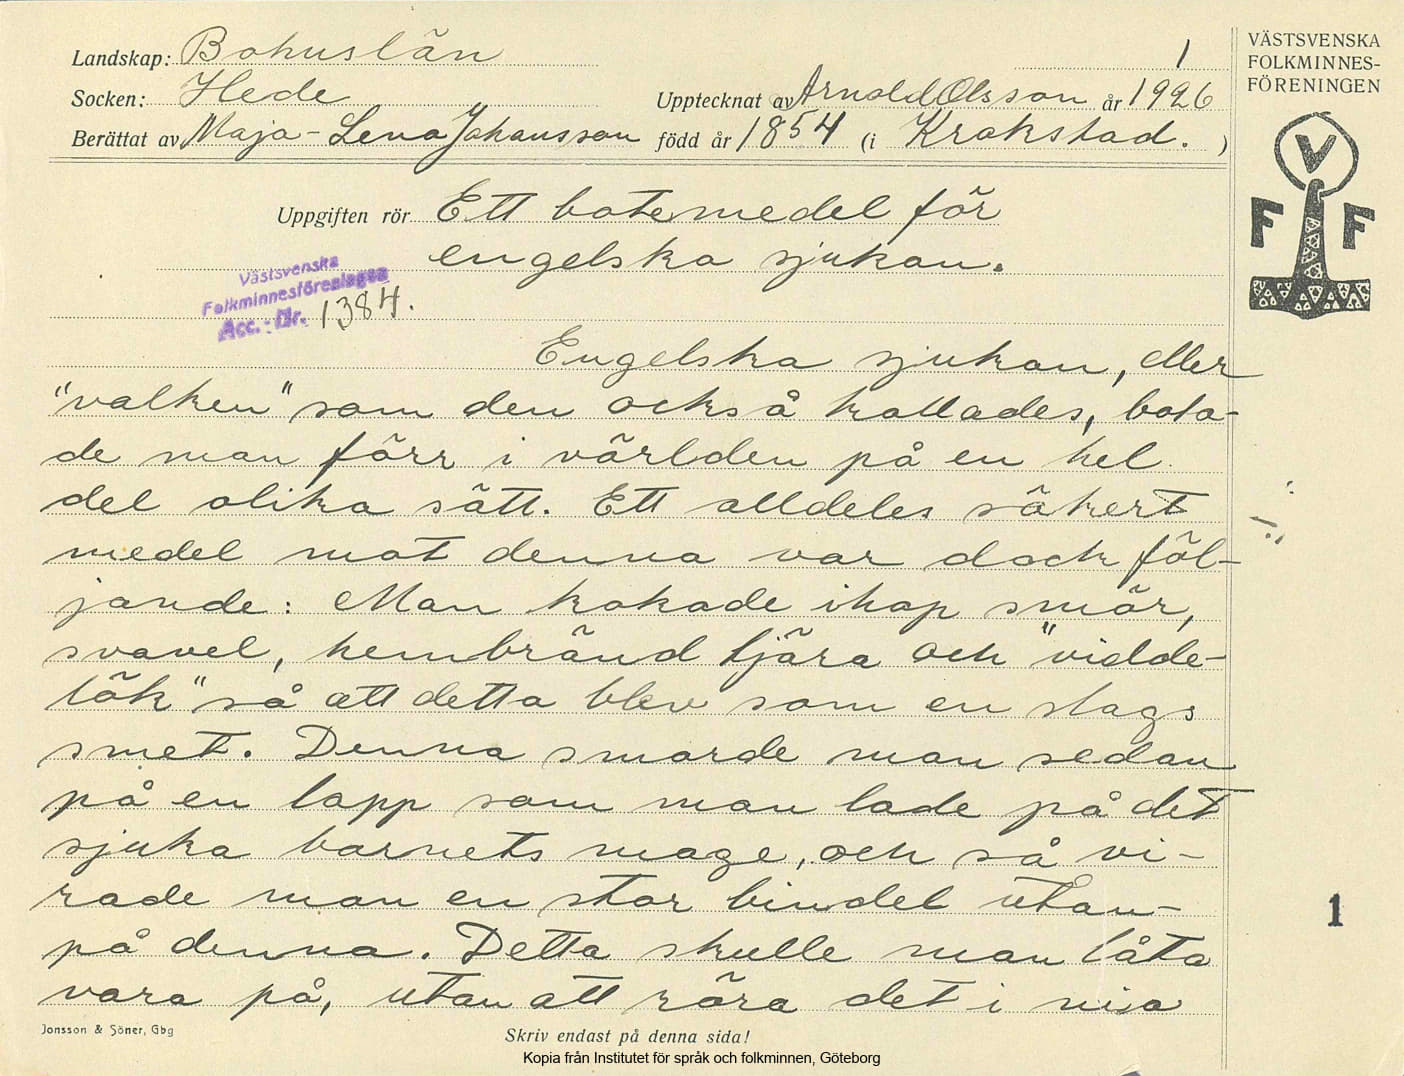 Landskap: Bohuslän
1
VÄSTSVENSKA
FOLKMINNES-
FÖRENINGEN
Socken: Hede
Upptecknat av Arnold Olsson år 1926
Berättat av Maja-Lena Johansson född år 1854 (i Krokstad. )
V
F F
Uppgiften rör Ett botemedel för
engelska sjukan.
Västsvenska
Folkminnesföreningen
Acc.-Nr. 1384.
Engelska sjukan, eller
"valken" som den också kallades, bota-
de man förr i världen på en hel
del olika sätt. Ett alldeles säkert
medel mot denna var dock föl-
jande: Man kokade ihop smör,
svavel, hembränd tjära och "vidde-
lök" så att detta blev som en slags
smet. Denna smorde man sedan
på en lapp som man lade på det
sjuka barnets mage, och så vi-
rade man en stor bindel utan-
på denna. Detta skulle man låta
vara på, utan att röra det i nio
1
Jonsson & Söner, Gbg
Skriv endast på denna sida!
Kopia från Institutet för språk och folkminnen, Göteborg